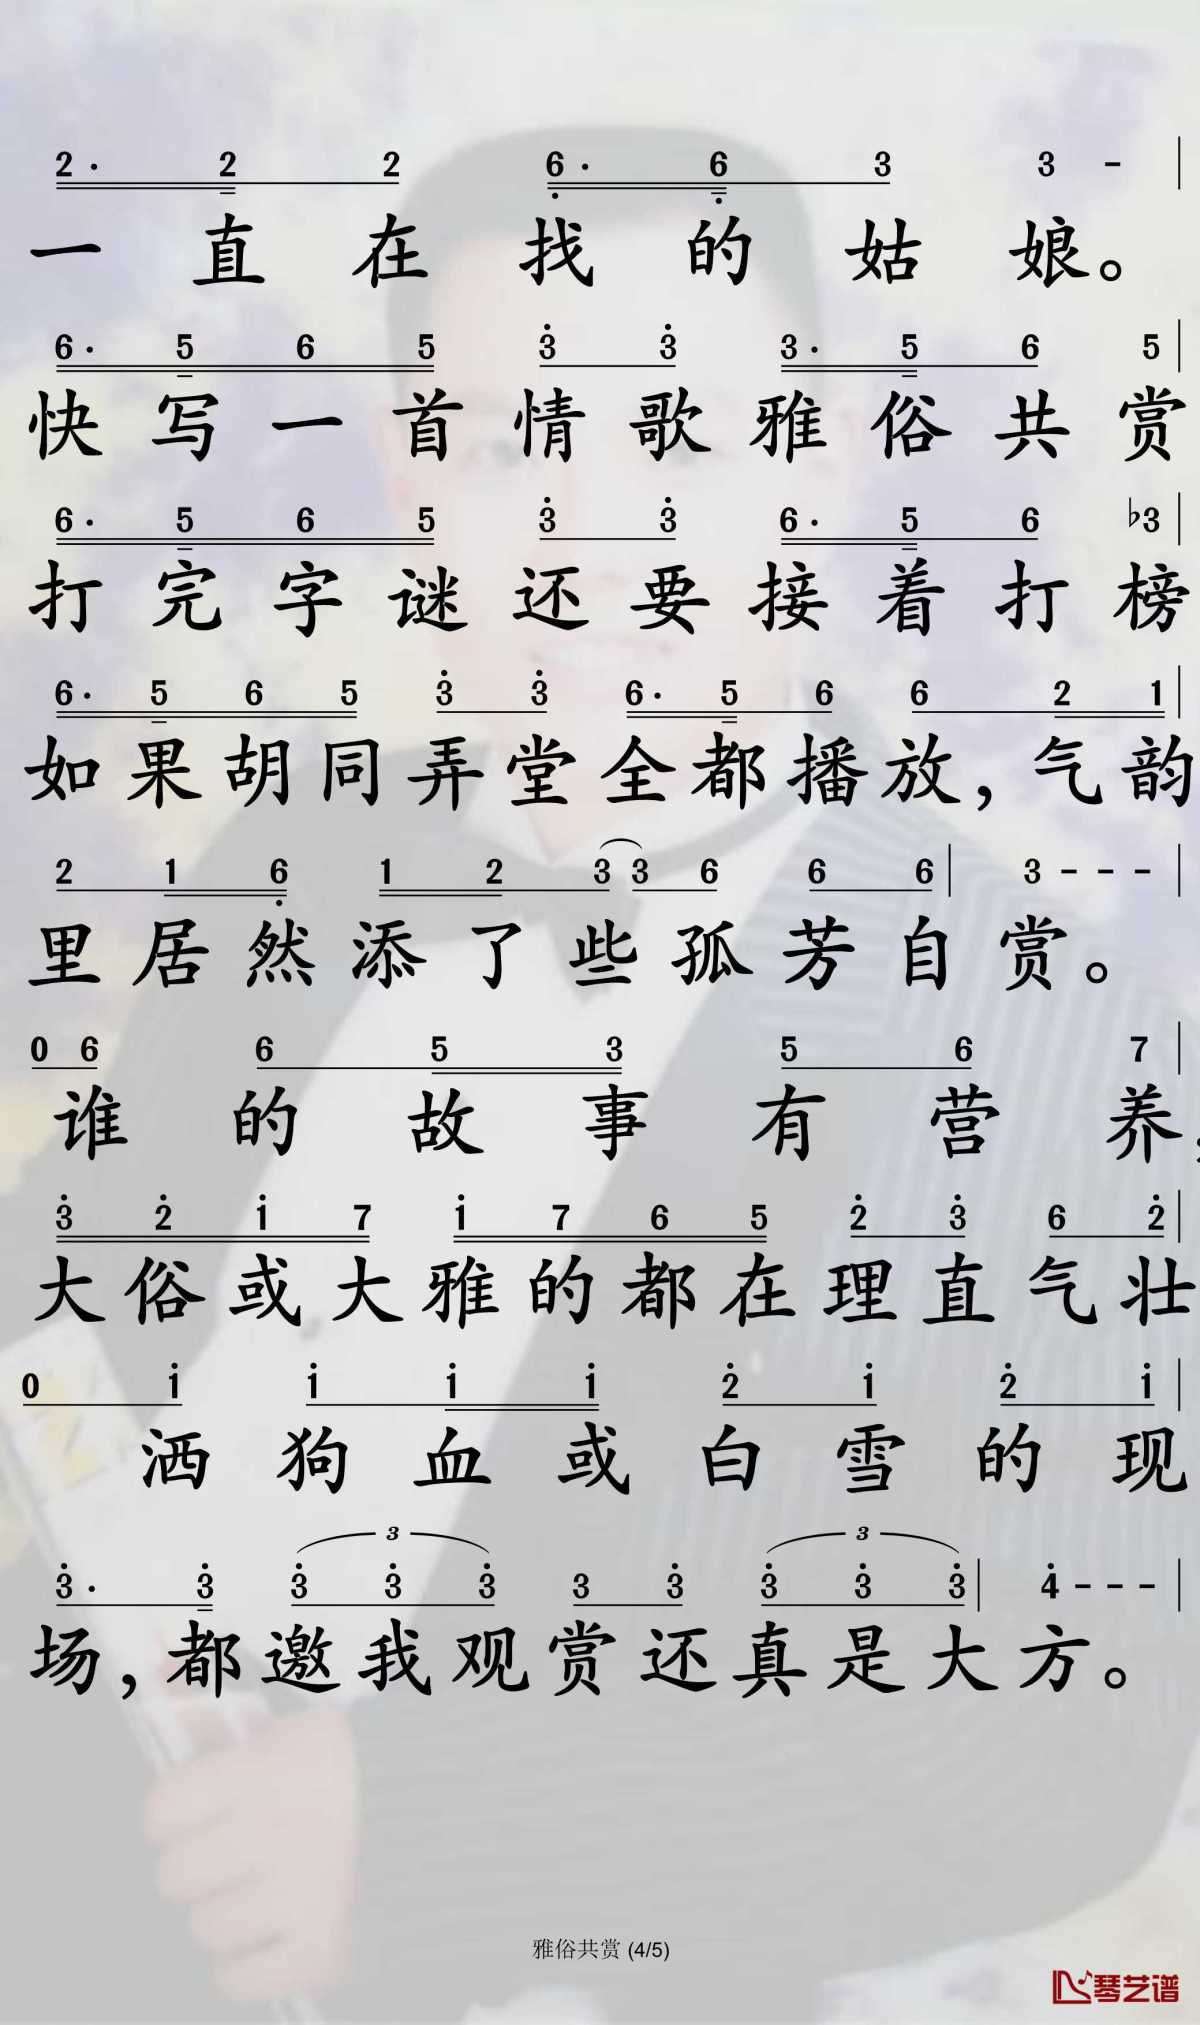 2· 2 2 6· 6 3 3 - |
一直在找的姑娘。
6· 5 6 5 3 3 3· 5 6 5 |
快写一首情歌雅俗共赏
6· 5 6 5 3 3 6· 5 6 ♭3 |
打完字谜还要接着打榜
6· 5 6 5 3 3 6· 5 6 6 2 1 |
如果胡同弄堂全都播放，气韵
2 1 6 1 2 3 3 6 6 6 | 3 - - - |
里居然添了些孤芳自赏。
0 6 6 5 3 5 6 7 |
谁的故事有营养，
3 2 1 7 1 7 6 5 2 3 6 2 |
大俗或大雅的都在理直气壮
0 1 1 1 1 2 1 2 1 |
洒狗血或白雪的现
3 3
3· 3 3 3 3 3 3 3 3 3 | 4 - - - |
场，都邀我观赏还真是大方。
雅俗共赏 (4/5)
琴艺谱